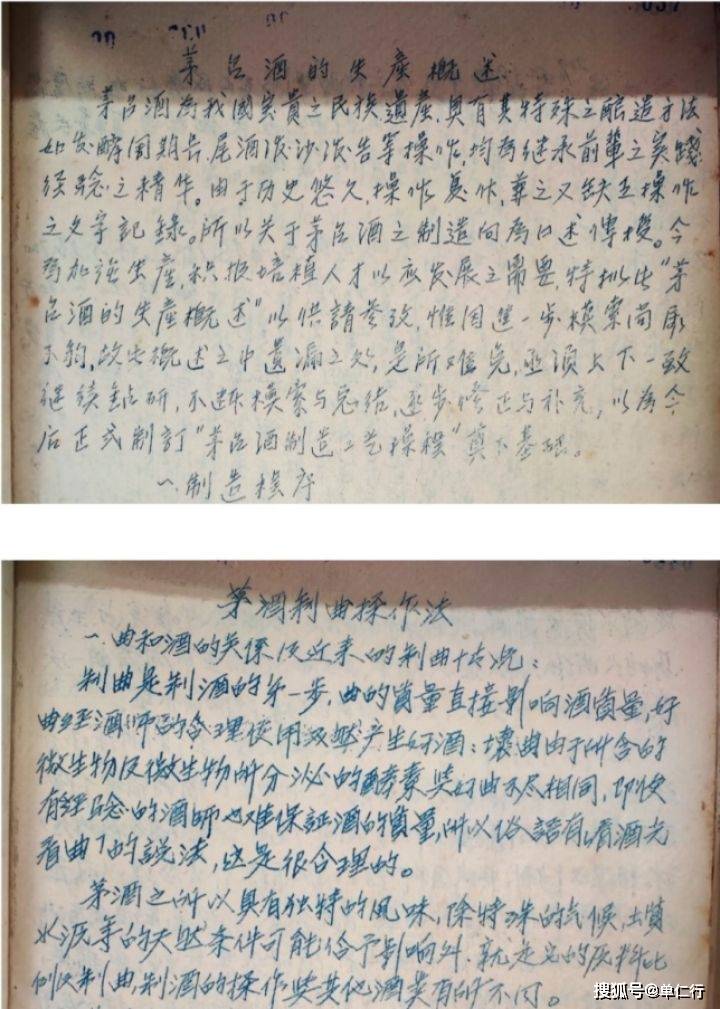 茅台酒的生产概述
茅台酒为我国宝贵之民族遗产，具有其特殊之酿造方法
如发酵周期长，尾酒泼沙泼告等操作，均为继承前辈之实践
经验之精华。由于历史悠久，操作复杂，葉之又缺乏操作
之文字記錄。所以关于茅台酒之制造向为口述傳授。今
为加強生產，积极培植人才以应发展之需要，特拟此“茅
台酒的生產概述”以供請参攷，惟因進一步摸索尚感
不夠，故此概述之中遺漏之处，是所难免，亟須上下一致
继续鉆研，不断摸索与总结，逐步修正与补充，以為今
后正式制訂“茅台酒制造工艺操程”奠下基础。
一、制造程序
茅酒制曲操作法
一、曲和酒的关係及近来的制曲情况：
制曲是制酒的第一步，曲的質量直接影响酒質量，好
曲经酒师的合理使用必然产生好酒；壞曲由于所含的
微生物及微生物所分泌的酵素與好曲不尽相同，即使
有经验的酒师也难保証酒的質量，所以俗語有“看酒先
看曲”的說法，这是很合理的。
茅酒之所以具有独特的风味，除特殊的气候，土質
水源等的天然条件可能给予影响外，就是它的原料比
例及制曲，制酒的操作與其他酒类有所不同。
搜狐号@单仁行